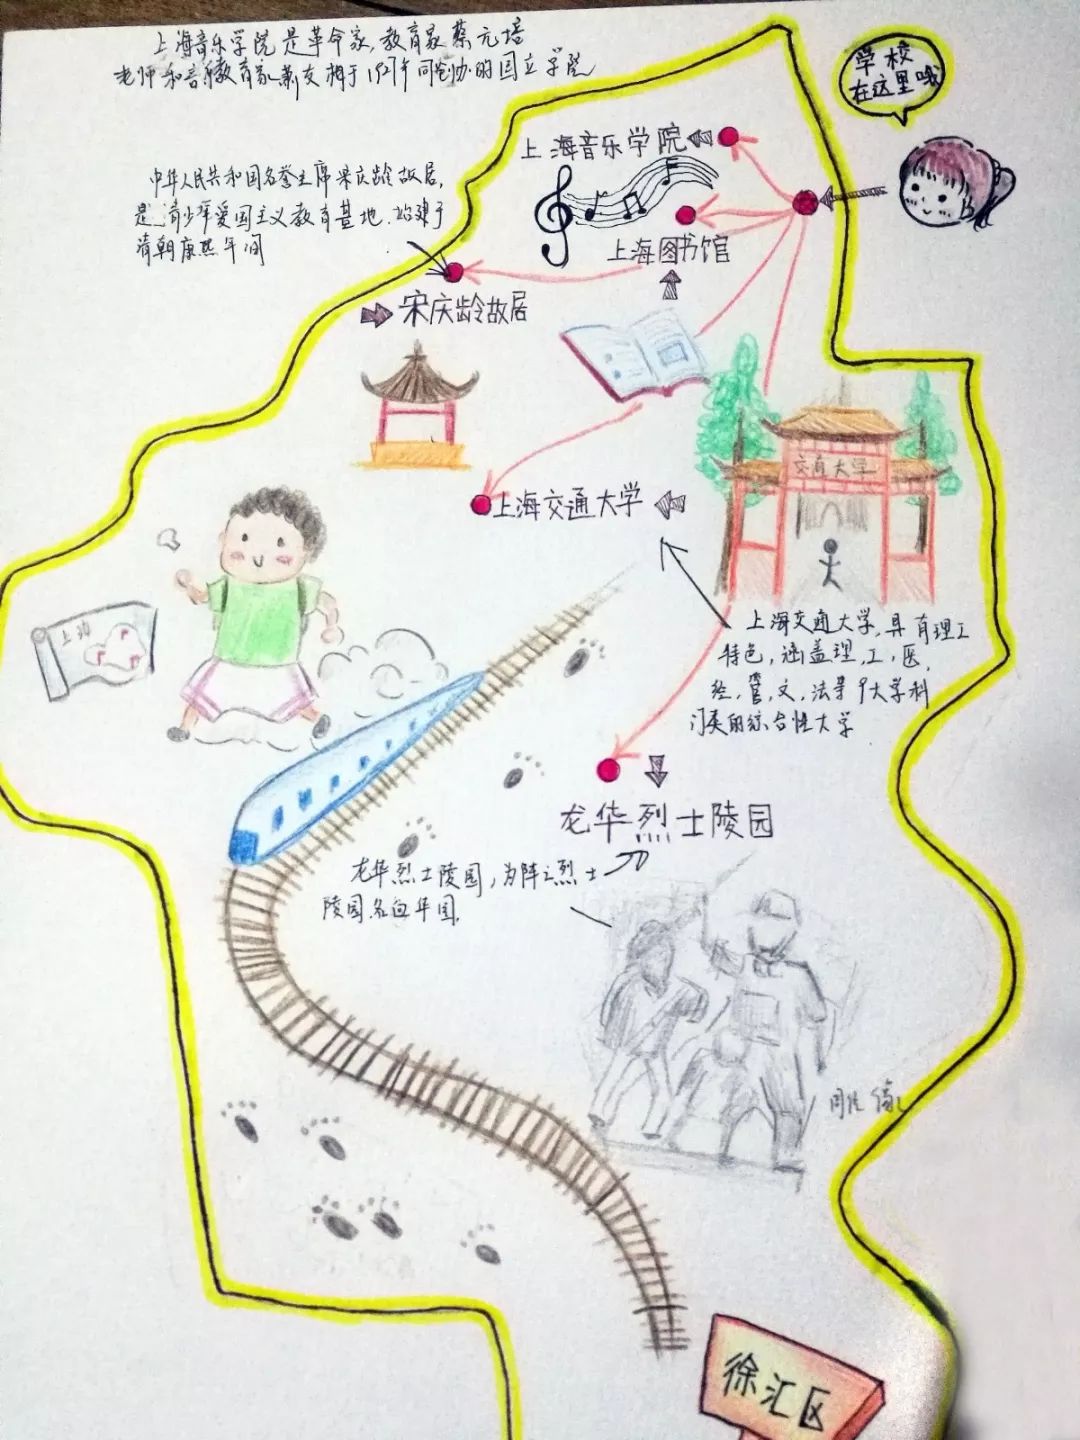 上海音乐学院是革命家,教育家蔡元培
老师和音乐教育家萧友梅于1927年同创办的国立学院
学校
在这里哦
上海音乐学院
中华人民共和国名誉主席宋庆龄故居,
是青少年爱国主义教育基地.始建于
清朝康熙年间
上海图书馆
宋庆龄故居
交通大学
上海交通大学
上海
上海交通大学,具有理工
特色,涵盖理,工,医,
经,管,文,法等9大学科
门类的综合性大学
龙华烈士陵园
龙华烈士陵园,为阵亡烈士
陵园名血华园.
徐汇区